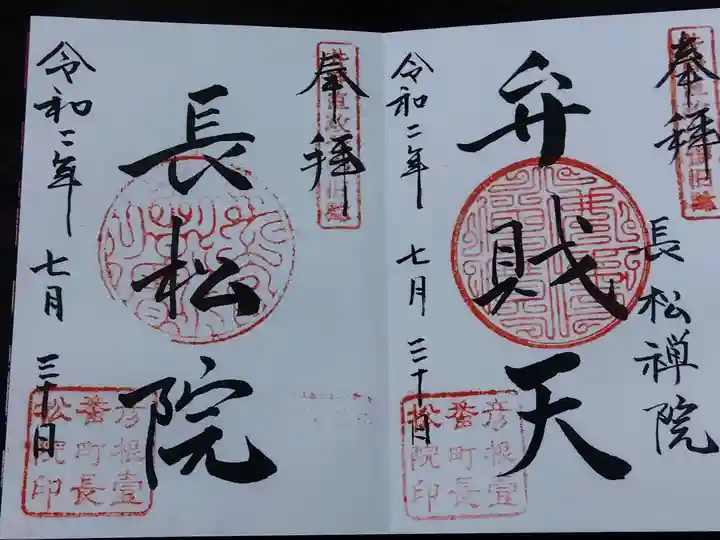 奉拝
弁賎天
長松禅院
令和二年 七月 三十日
彦根壹
番町長
松院印
奉拝
長松院
令和二年 七月 三十日
彦根壹
番町長
松院印